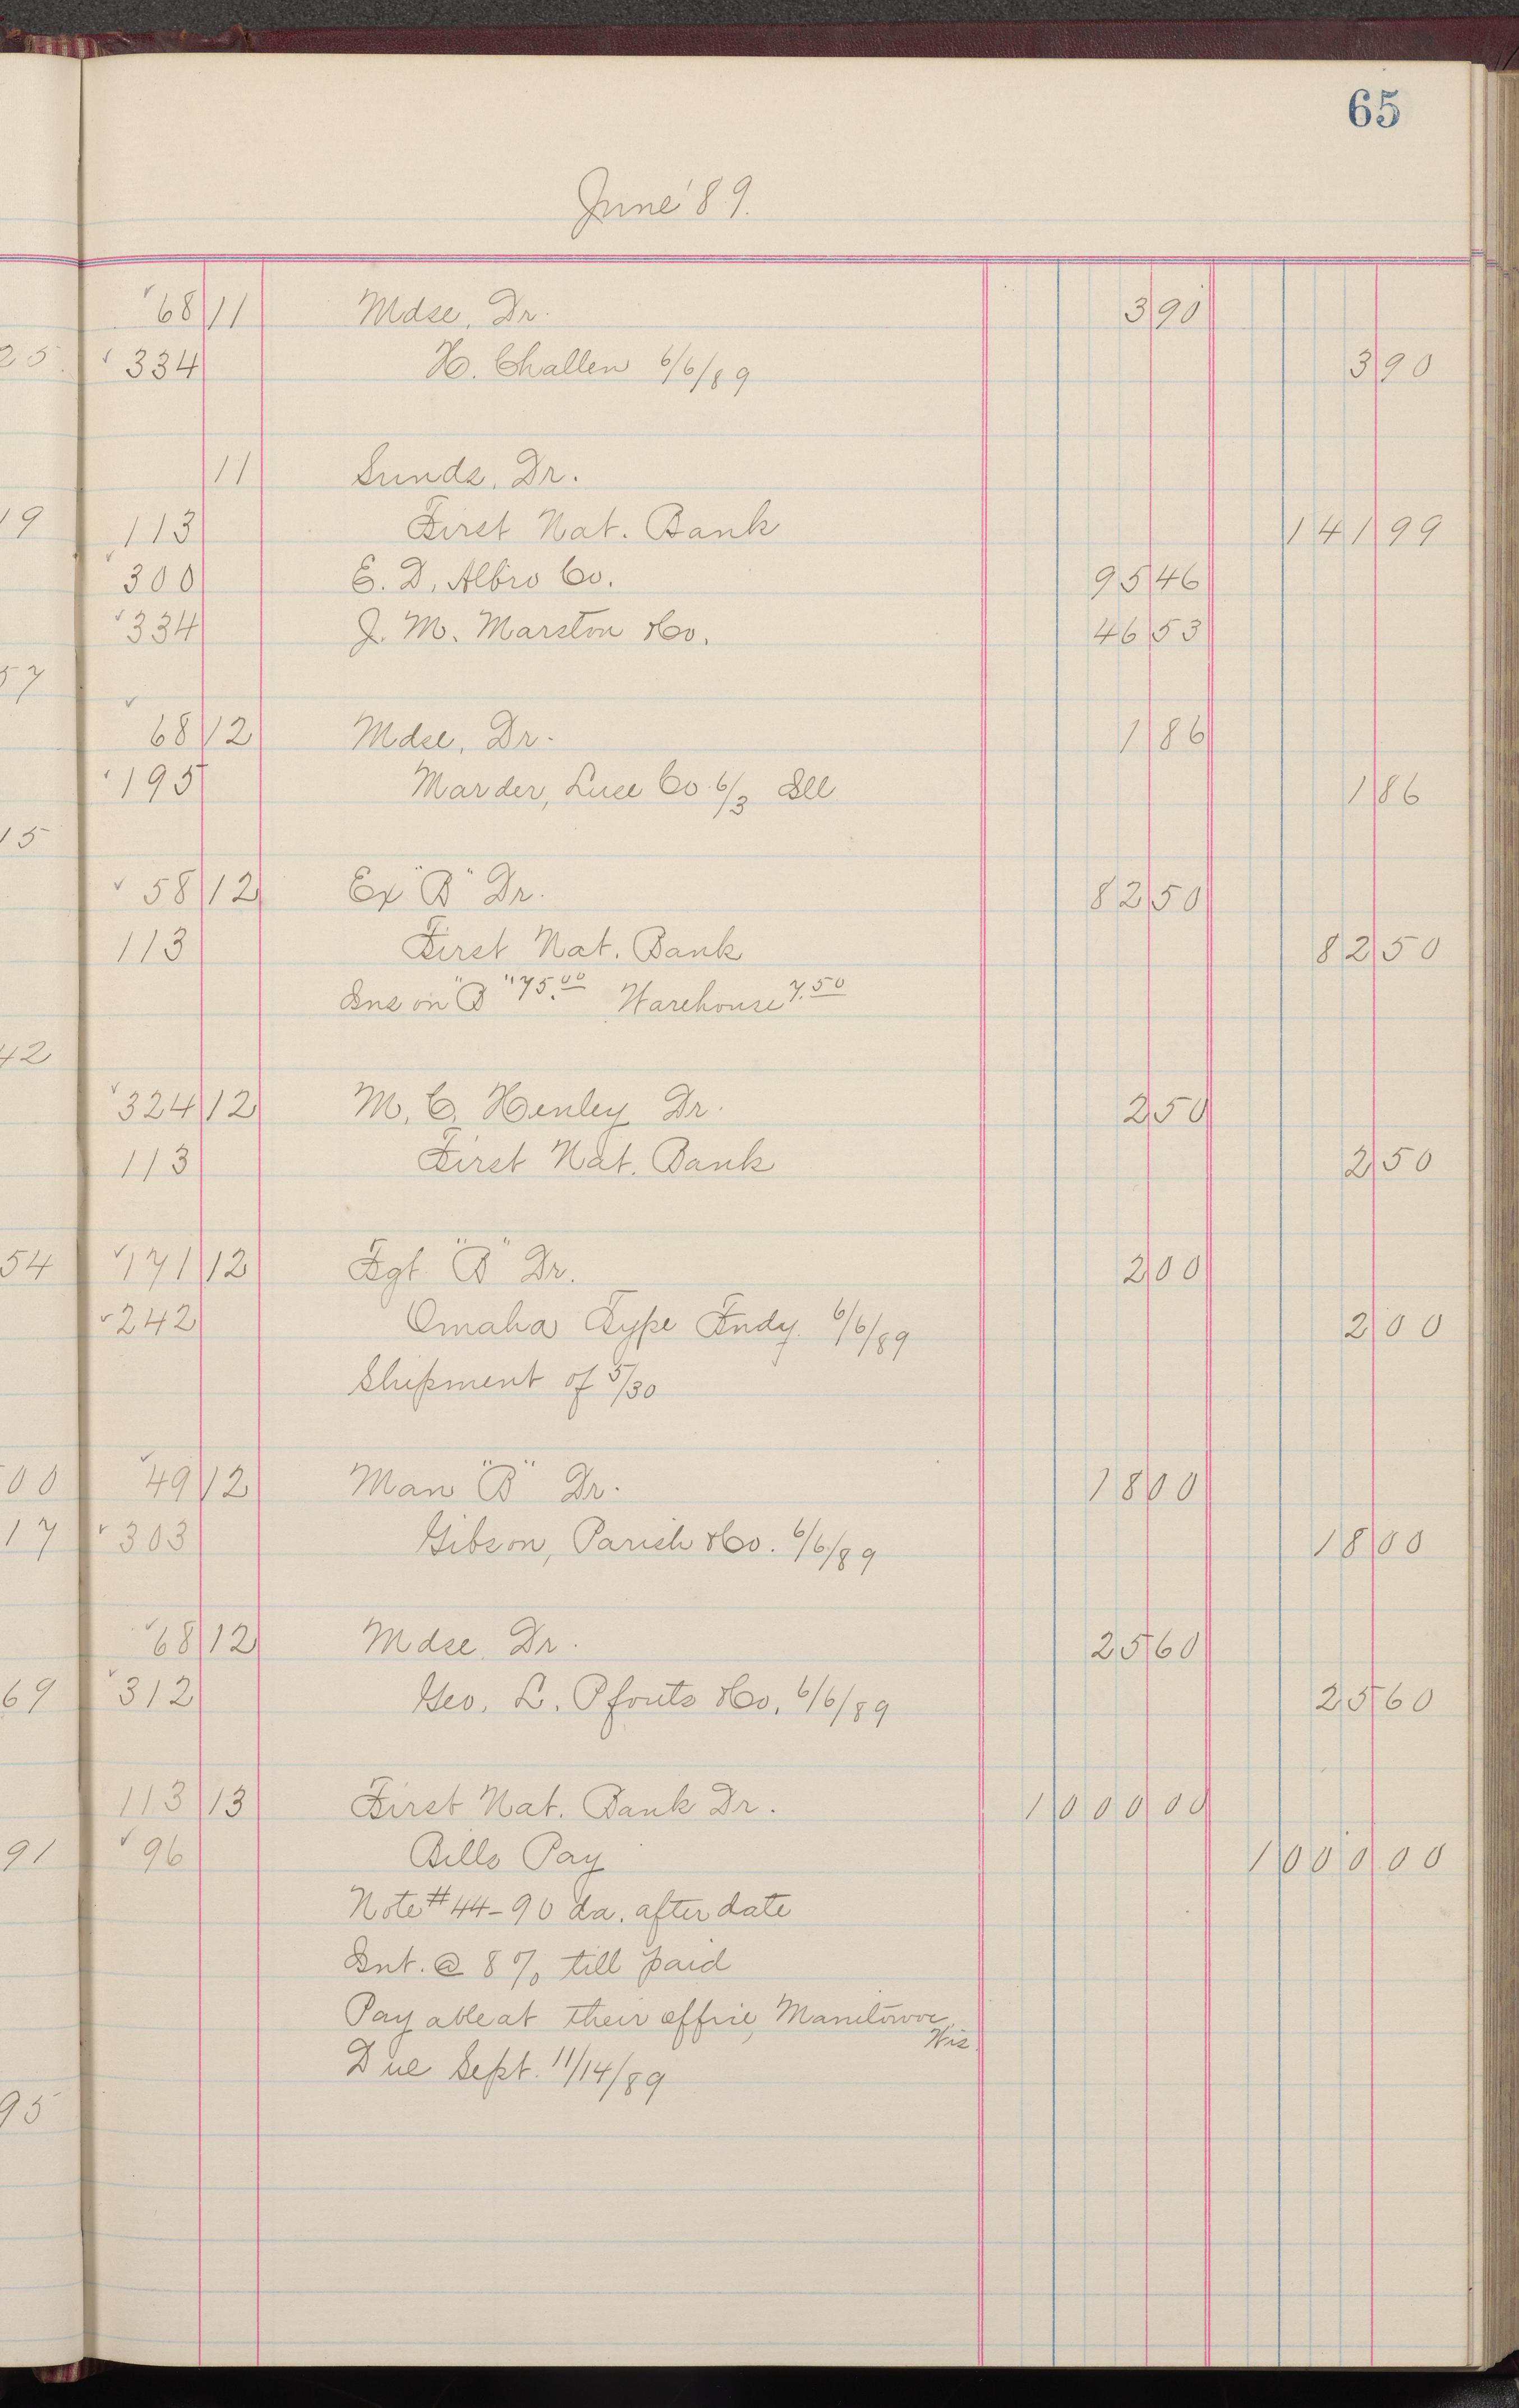 65
June '89.
68 11 Mdse, Dr. 3 90
25. 334 H. Challen 6/6/89 3 90
11 Sunds, Dr.
19 113 First Nat. Bank 141 99
300 E. D. Albro Co. 95 46
334 J. M. Marston &Co. 46 53
57
68 12 Mdse, Dr. 1 86
195 Marder, Luse Co. 6/3 Ill 1 86
15
58 12 Ex "B" Dr. 82 50
113 First Nat. Bank 82 50
Ins on "B" 75.00 Warehouse 7.50
42
324 12 M. C. Henley Dr. 2 50
113 First Nat. Bank 2 50
54 171 12 Fgt "B" Dr. 2 00
242 Omaha Type Fndy. 6/6/89 2 00
Shipment of 5/30
00 49 12 Man "B" Dr. 18 00
17 303 Gibson, Parish &Co. 6/6/89 18 00
68 12 Mdse Dr. 25 60
69 312 Geo. L. Pfouts &Co. 6/6/89 25 60
113 13 First Nat. Bank Dr. 1000 00
91 96 Bills Pay 1000 00
Note #44-90 da. after date
Int. @ 8% till paid
Payable at their office, Manitowoc,
Wis.
Due Sept. 11/14/89
95